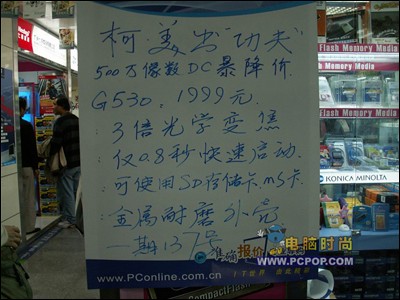 柯·美出"功夫"
500万像数DC暴降价
G530. 1999元.
3倍光学变焦
仅0.8秒快速启动.
可使用SD存储卡.ms卡
金属耐磨外壳
一期137号
准确 报价
电脑时尚
WWW.PCPOP.COM
www.PConline.com.cn
IT世界
Flash Memory Media
Flash Memory Media
KONICA MINOLTA
CompactFlash